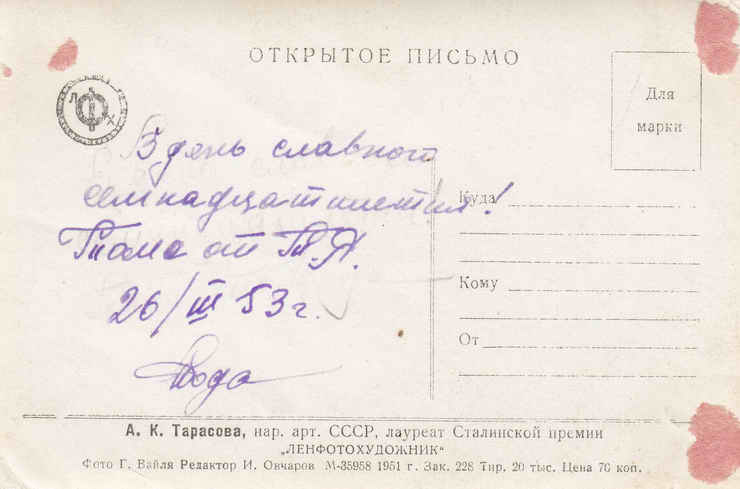 ОТКРЫТОЕ ПИСЬМО
Л Ф Х
Для
марки
В день славного
семнадцатилетия!
Томе от Т.Я.
26/III 53 г.
Куда
Кому
От
А. К. Тарасова, нар. арт. СССР, лауреат Сталинской премии
„ЛЕНФОТОХУДОЖНИК“
Фото Г. Вайля Редактор И. Овчаров М-35958 1951 г. Зак. 228 Тир. 20 тыс. Цена 70 коп.